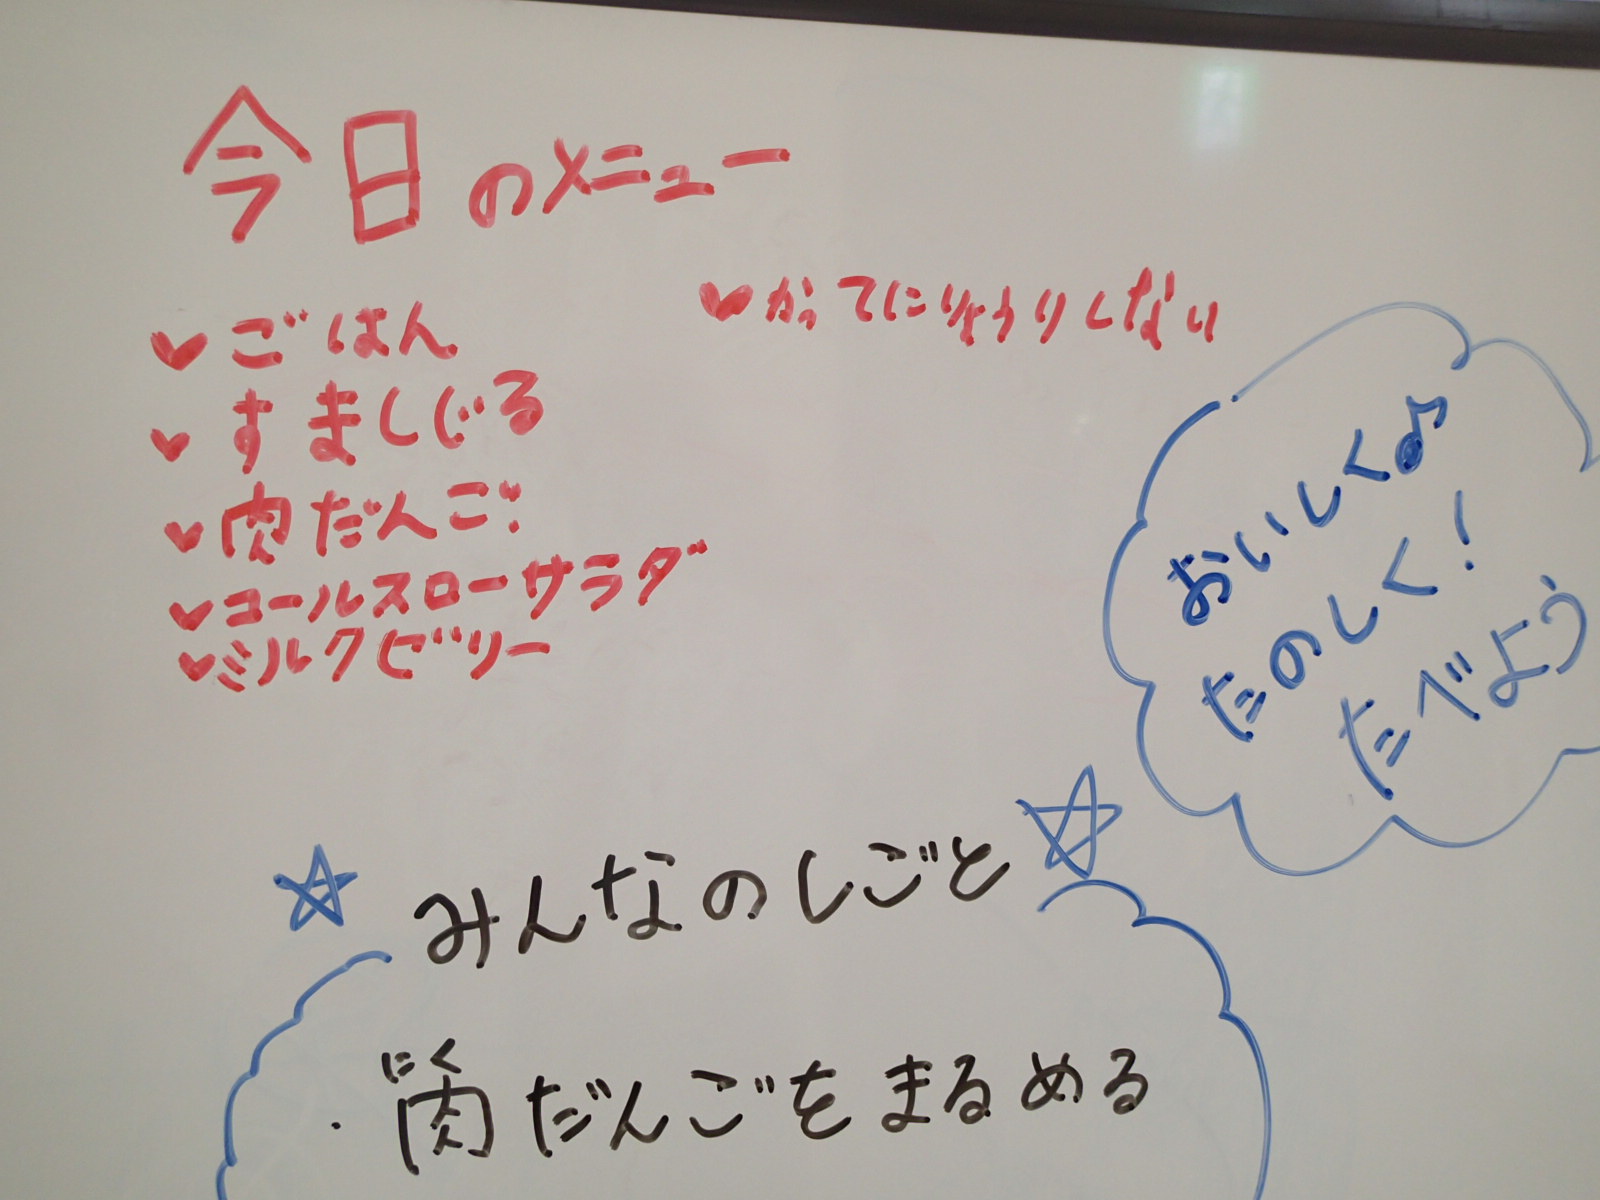 今日のメニュー
♥ごはん
♥すましじる
♥肉だんご
♥コールスローサラダ
♥ミルクゼリー
♥かってにりょうりしない
おいしく♪
たのしく!
たべよう
みんなのしごと
にく
・肉だんごをまるめる